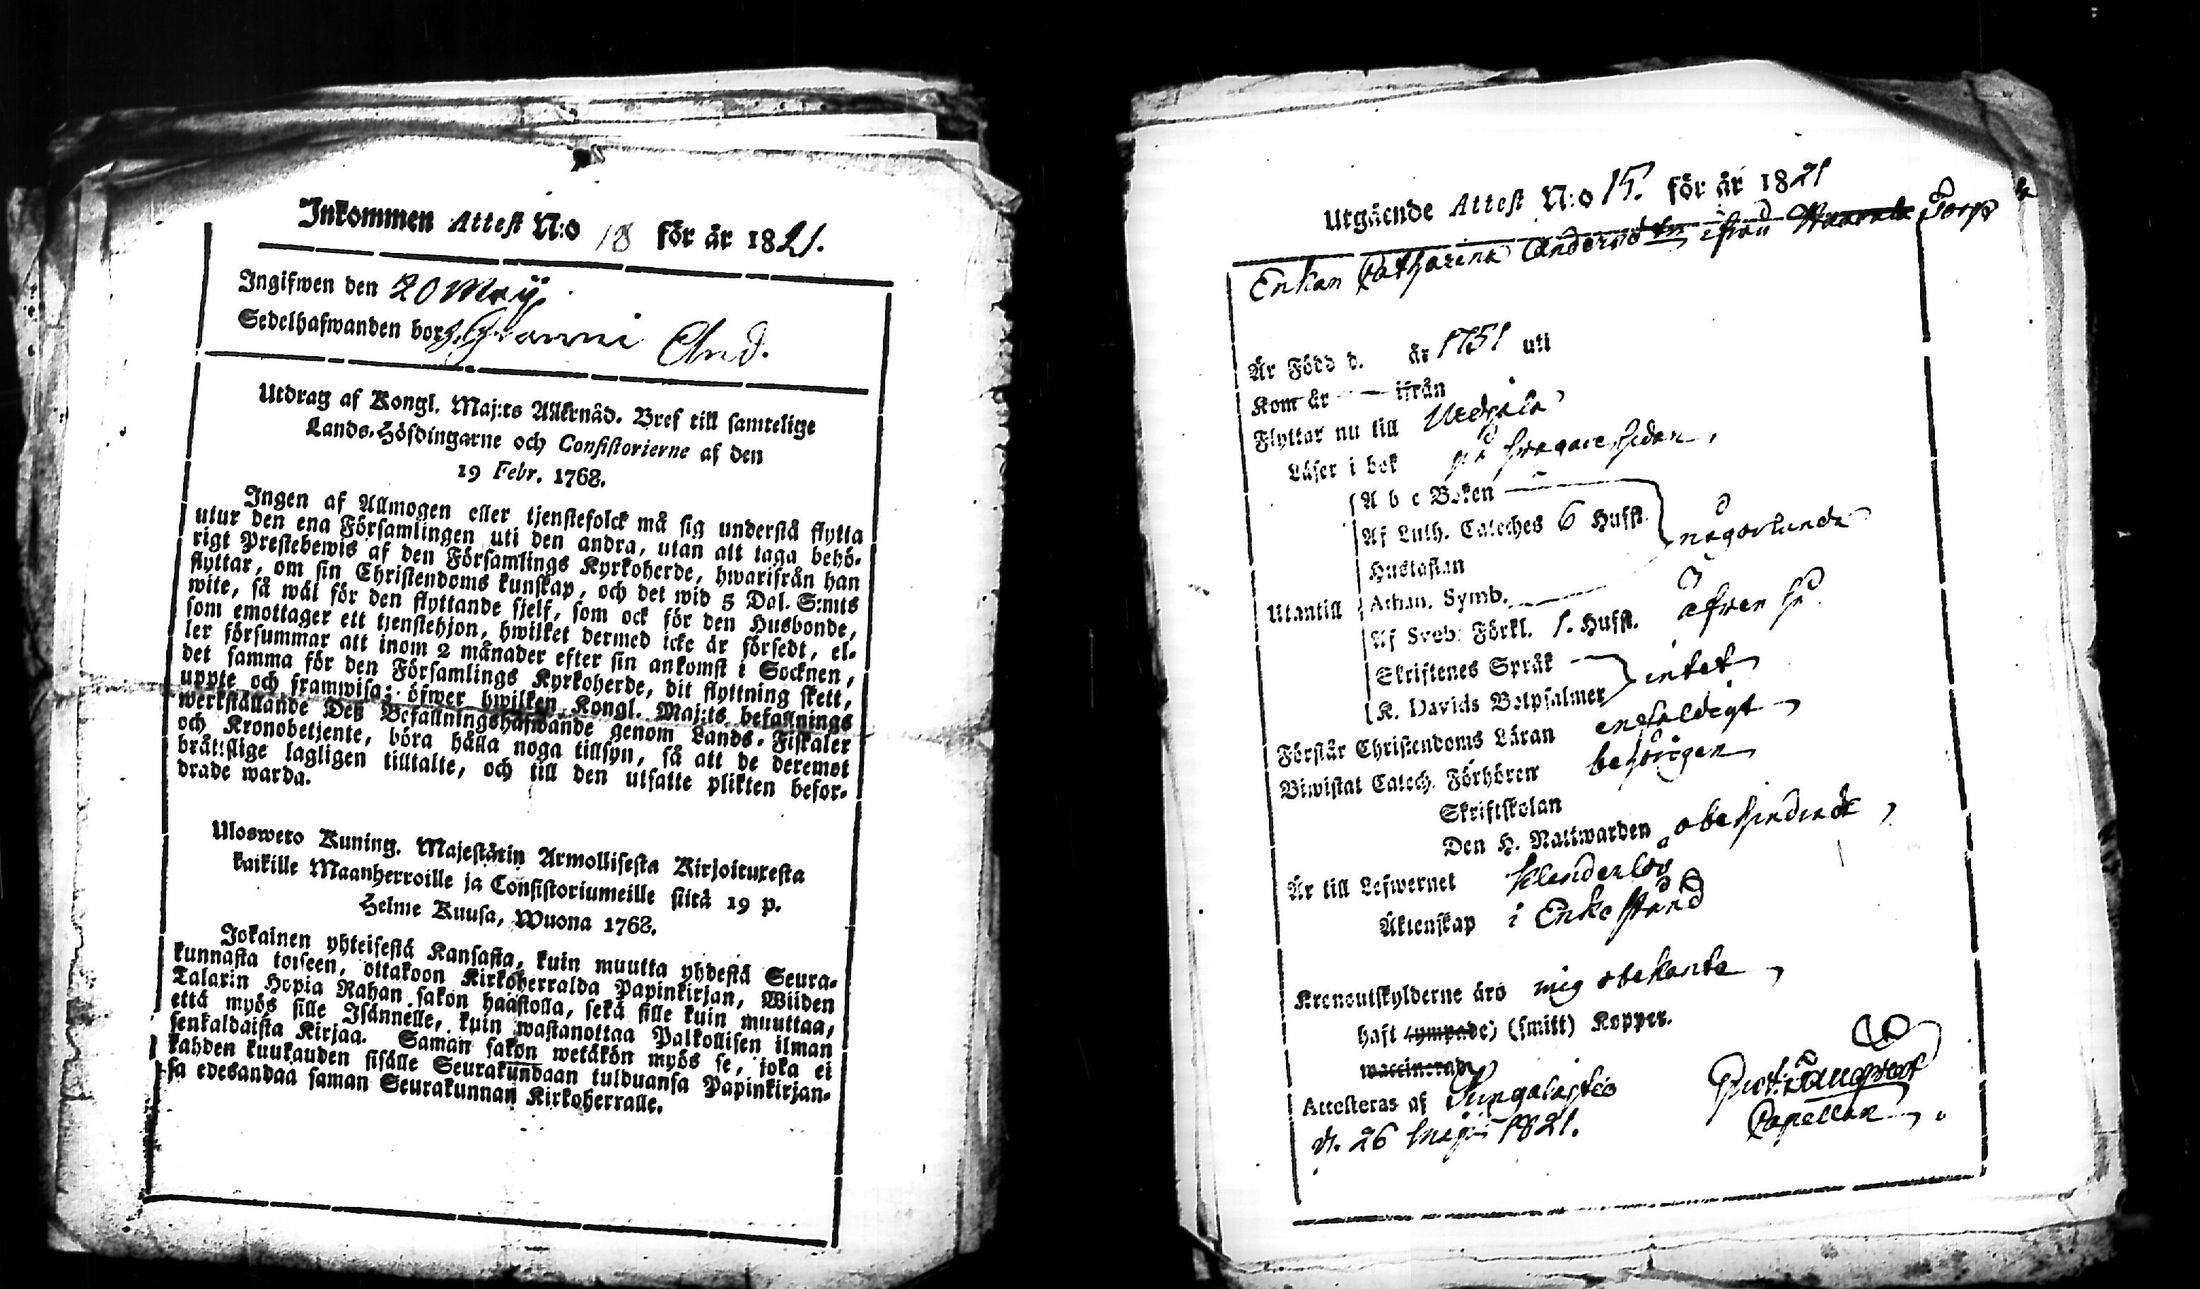 Inkommen Attest N:o 18 för år 1821.
Ingifwen den 20 Maij
Sedelhafwanden bor And.
Utdrag af Kongl. Maj:ts Allernåd. Bref till samtelige
Lands-Höfdingarne och Consistorierne af den
19 Febr. 1768.
Ingen af Allmogen eller tjenstefolck må sig understå flytta
utur den ena Församlingen uti den andra, utan att taga behö-
rigt Prestebewis af den Församlings Kyrkoherde, hwarifrån han
flyttar, om sin Christendoms kunskap, och det wid 5 Dal. S:mts
wite, så wäl för den flyttande sjelf, som ock för den Husbonde,
som emottager ett tjenstehjon, hwilket dermed icke är försedt, el-
ler försummar att inom 2 månader efter sin ankomst i Socknen,
det samma för den Församlings Kyrkoherde, dit flyttning skett,
uppte och framwisa; öfwer hwilken Kongl. Maj:ts befallnings
werkställande Deß Befallningshafwande genom Lands-Fiskaler
och Kronobetjente, böra hålla noga tillsyn, så att de deremot
bråttslige lagligen tilltalte, och till den utsatte plikten befor-
drade warda.
Ulosweto Kuning. Majestätin Armollisesta Kirjoituxesta
kaikille Maanherroille ja Consistoriumeille siitä 19 p.
Helme Kuusa, Wuona 1768.
Jokainen yhteisestä Kansasta, kuin muutta yhdestä Seura-
kunnasta toiseen, ottakoon Kirkoherralda Papinkirjan, Wiiden
Talarin Hopia Rahan sakon haastolla, sekä sille kuin muuttaa,
että myös sille Isännelle, kuin wastanottaa Palkollisen ilman
senkaldaista Kirjaa. Saman sakon wetäkön myös se, joka ei
kahden kuukauden sisälle Seurakundaan tulduansa Papinkirjan-
sa edesandaa saman Seurakunnan Kirkoherralle.
Utgående Attest N:o 15. för år 1821
Enkan Catharina Andersdotter ifrån Torp
Är Född d. år 1751 uti
Kom år — ifrån
Flyttar nu till Urdiala
Läser i bok på fragaresidan,
A b c Boken
Af Luth. Catéches 6 Hufst. någorlunda
Hustaflan
Utantill Athan. Symb.
Af Sveb: Förkl. 1. Hufst. äfven så
Skriftenes Språk
K. Davids Botpsalmer intet
Förstår Christendoms Läran enfaldigt
Biwistat Catech. Förhören behörigen
Skriftskolan
Den H. Nattwarden obehindrade,
Är till Lefwernet klanderlös
Äktenskap i Enkestånd
Kronoutskylderne äro mig obekanta,
haft (ympade) (smitt) Koppor.
waccinerade
Attesteras af Pungalaitio
d. 26 Maji 1821.
Capellan